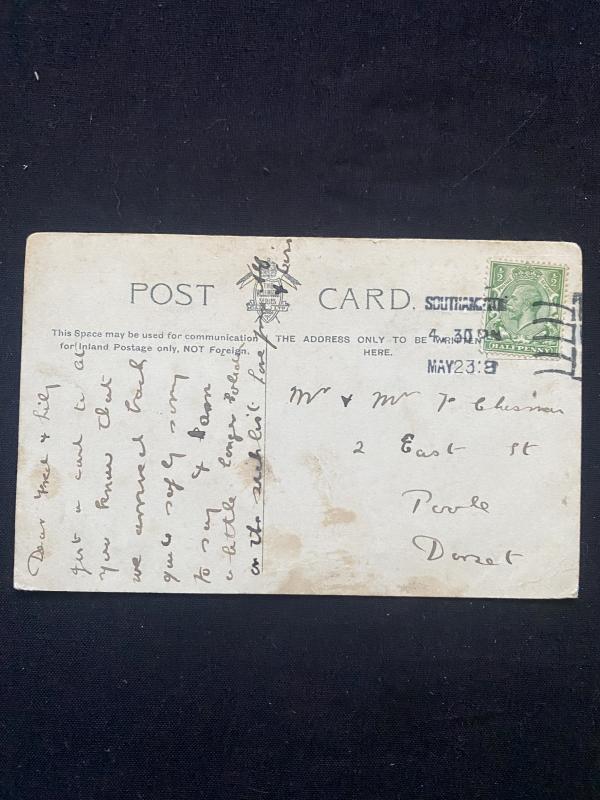 POST CARD.
This Space may be used for communication
for Inland Postage only, NOT Foreign.
THE ADDRESS ONLY TO BE WRITTEN
HERE.
SOUTHAMPTON
4. 30 PM
MAY 23 : 8
½ ½
HALFPENNY
Mr & Mrs Chesman
2 East St
Poole
Dorset
Dear Fred & Lily
just a card to let
you know that
we arrived back
quite safely sorry
to say I am
a little longer
on the sick list love from